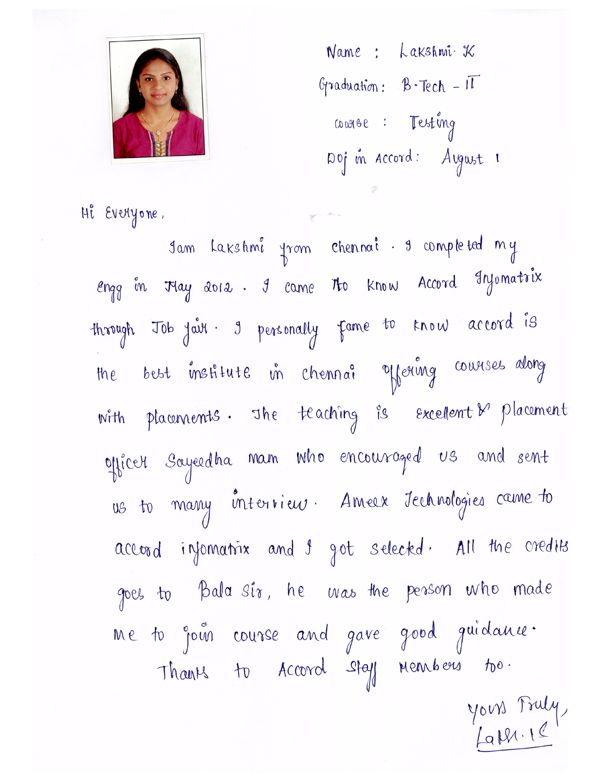 Name : Lakshmi. K
Graduation: B-Tech - IT
course : Testing
DOJ in Accord: August 1
Hi Everyone,
Iam Lakshmi from chennai. I completed my
engg in May 2012. I came to know Accord Infomatrix
through Job fair. I personally fame to know accord is
the best institute in chennai offering courses along
with placements. The teaching is excellent & placement
officer Sayeedha mam who encouraged us and sent
us to many interview. Ameex Technologies came to
accord infomatrix and I got selectd. All the credits
goes to Bala Sir, he was the person who made
me to join course and gave good guidance.
Thanks to Accord Staff Members too.
Yours Truly,